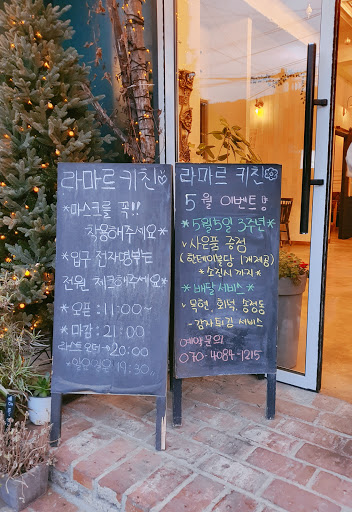 라마르키친
*마스크를 꼭!!
착용해주세요*
*입구 전자명부도
전원 체크해주세요*
*오픈 : 11:00~
*마감 : 21:00
라스트 오더→20:00
*일요일은 19:30
라마르 키친
5월 이벤트
*5월5일 3주년*
사은품 증정
(한테이블당 1개제공)
*소진시 까지*
*배달서비스*
목현, 회덕, 송정동
-감자튀김 서비스
예약문의
070-4084-1215